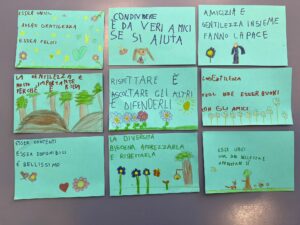 ESSER UNITI
DONA GENTILEZZA
ESSERE FELICI
CONDIVIDERE
È DA VERI AMICI
SE SI AIUTA
AMICIZIA E
GENTILEZZA INSIEME
FANNO LA PACE
LA GENTILEZZA È
MOLTO IMPORTANTE
PERCHÉ
RISPETTARE È
ASCOLTARE GLI ALTRI
E DIFENDERLI
GENTILEZZA
VUOL DIRE ESSERE BUONI
CON GLI AMICI
ESSER CONTENTI
ESSERE DISPONIBILI
È BELLISSIMO
LA DIVERSITÀ
BISOGNA APPREZZARLA
E RISPETTARLA
ESSER UNITI